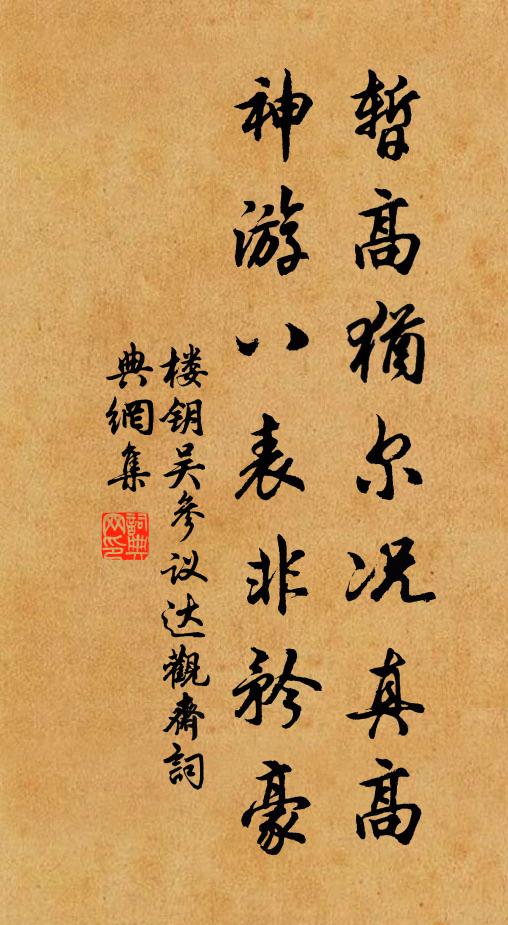 暂高犹尔况真高
神游八表非矜豪
楼钥吴参议达觀齋詞
典網集
詞典
网印